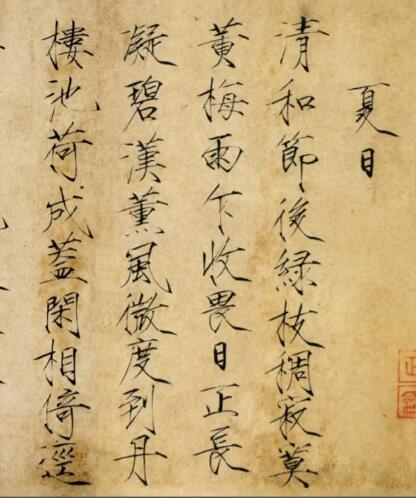 夏日
清和節後緑枝稠寂寞
黃梅雨乍收畏日正長
凝碧漢薰風微度到丹
樓池荷成蓋閑相倚逕